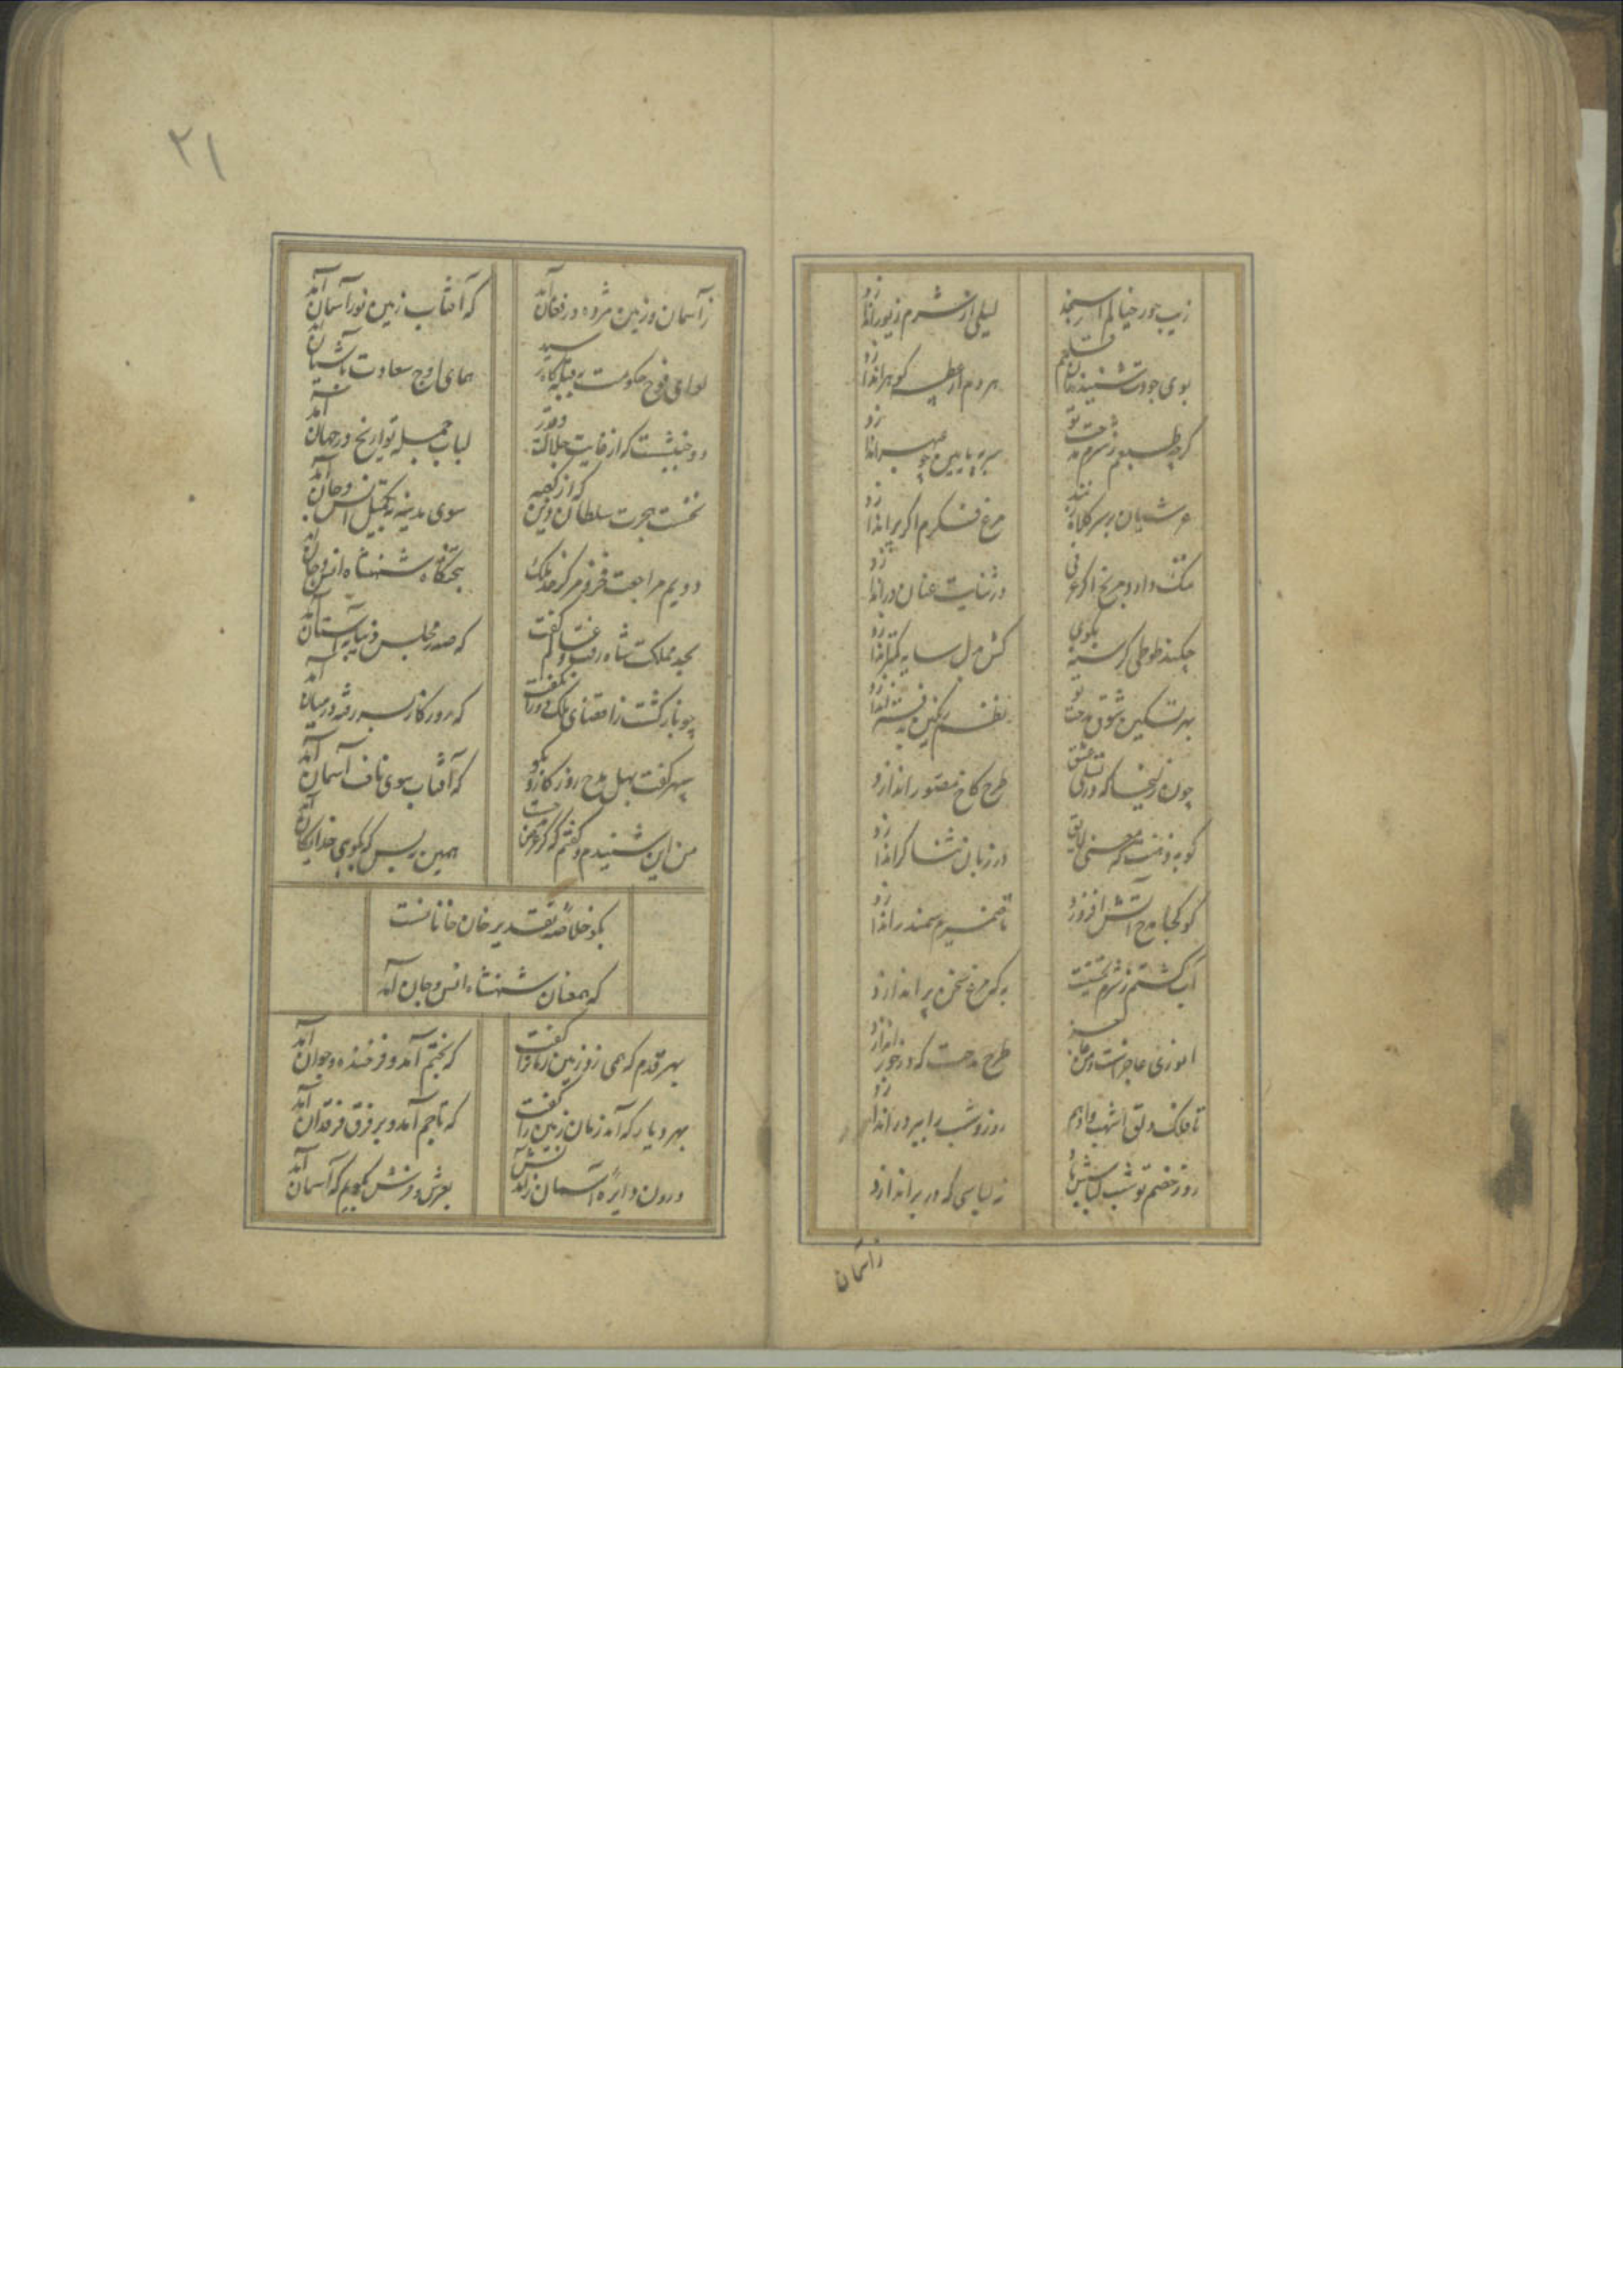 زیب حور خیالم ار سنجد
لیلی از شرم زیور اندازد
بوی جودت شنید زان قلزم
هر دم از عطسه گوهر اندازد
گرچه طبعم ز شرم مدحت تو
عرشیان بر سر کلاه زنند
مرغ فکرم اگر پر اندازد
ملک داد و مریخ اگر عرفی
در ثنایت عنان در اندازد
چکند طوطی گرسنه بگوی
کش مرل سایه کمتر اندازد
بهر تسکین شوق مدحت تو
نظم رنگین به دفتر اندازد
چون زلیخا که در تسلی عشق
طرح کاخ مصور اندازد
کو به ذهنت که معنی لایق
در زبان ثناگر اندازد
کو کجا مدح آتش افروزد
تا ضمیرم سمندر اندازد
آب گشتم ز شرم حقیقت
به که مرغ سخن پر اندازد
انوری عاجز است و من عاجز
طرح مدحت که در خور اندازد
تا فلک دلق اشهب و ادهم
روز و شب را ببر در اندازد
روز خصم تو شب لباسش باد
نه لباسی که در بر اندازد
ز آسمان
۲۱
ز آسمان و زمین مژده در فغان آمد
که آفتاب زمین نور آسمان آمد
لوای فوج حکومت به قبله گاه رسید
همای اوج سعادت به آشیان آمد
دو جنبشست که از غایت جلالت و قدر
لباب جمله تواریخ در جهان آمد
نخست هجرت سلطان دین که از کعبه
سوی مدینه به تکمیل انس و جان آمد
دویم مراجعت فر و مرکز خد ملک
به تختگاه شهنشاه انس و جان آمد
بحد مملکت شاه رفت و عالم گفت
که صدر مجلس دنیا به آستان آمد
چو باز گشت ز اقصای ملک دوران گفت
که روزگار بسر رفته در میان آمد
سپهر گفت بهل مدح روزگار و بگو
که آفتاب سوی ناف آسمان آمد
من این شنیدم و گفتم که گر مدحت
همین بس که بگویی خدایگان آمد
بگو خلاصه تقدیر خان خانانست
که همعنان شهنشاه انس و جان آمد
بهر قدم که همی زد زمین زمان را گفت
که بختم آمد و فرخنده و جوان آمد
بهر دیار که آمد زمان زمین را گفت
که تاجم آمد و بر فرق فرقدان آمد
درون دایره آسمان ز آمدنش
بعرش و فرش بگویم که آسمان آمد